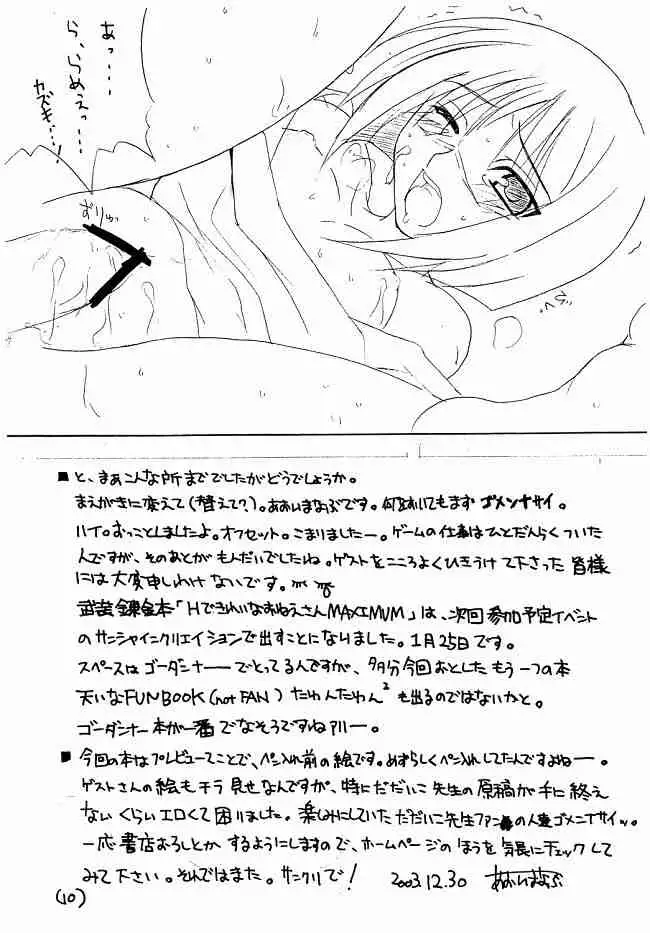 あっ……
ら、らめえっ……
カズキ……!
■と、まぁこんな所まででしたがどうでしょうか。
まえがきに変えて(替えて?)。あおいまなぶです。何はおいてもまずゴメンナサイ。
ハイ。おっことしましたよ。オフセット。こまりましたー。ゲームの仕事はひとだんらくついた
んですが、そのあとがもんだいでしたね。ゲストをこころよくひきうけて下さった皆様
には大変申しわけないです。
武装錬金本「HできれいなおねえさんMAXIMUM」は、次回参加予定イベント
のサンシャインクリエイションで出すことになりました。1月25日です。
スペースはゴーダンナーでとってるんですが、多分今回おとしたもう一つの本
天いなFUN BOOK(not FAN)たわんたわん2も出るのではないかと。
ゴーダンナー本が一番でなそうですねアリー。
■今回の本はプレビューてことで、ペン入れ前の絵です。めずらしくペン入れしてたんですよねー。
ゲストさんの絵もチラ見せなんですが、特にだだいこ先生の原稿が手に終え
ないくらいエロくて困りました。楽しみにしていただだいこ先生ファンの人達ゴメンナサイッ。
一応書店おろしとかするようにしますので、ホームページのほうを気長にチェックして
みて下さい。それではまた。サンクリで! 2003.12.30 あおいまなぶ
(10)